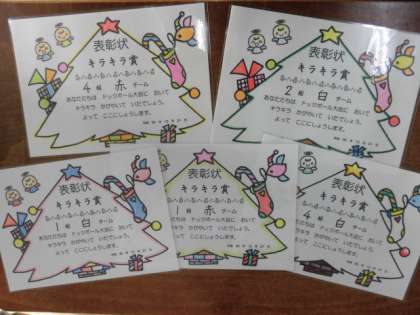 表彰状
キラキラ賞
4組 赤 チーム
あなたたちは ドッジボール大会に おいて
キラキラ かがやいて いたでしょう。
よって ここにしょうします。
表彰状
キラキラ賞
2組 白 チーム
あなたたちは ドッジボール大会に おいて
キラキラ かがやいて いたでしょう。
よって ここにしょうします。
表彰状
キラキラ賞
1組 白 チーム
あなたたちは ドッジボール大会に おいて
キラキラ かがやいて いたでしょう。
よって ここにしょうします。
表彰状
キラキラ賞
1組 赤 チーム
あなたたちは ドッジボール大会に おいて
キラキラ かがやいて いたでしょう。
よって ここにしょうします。
表彰状
キラキラ賞
4組 白 チーム
あなたたちは ドッジボール大会に おいて
キラキラ かがやいて いたでしょう。
よって ここにしょうします。